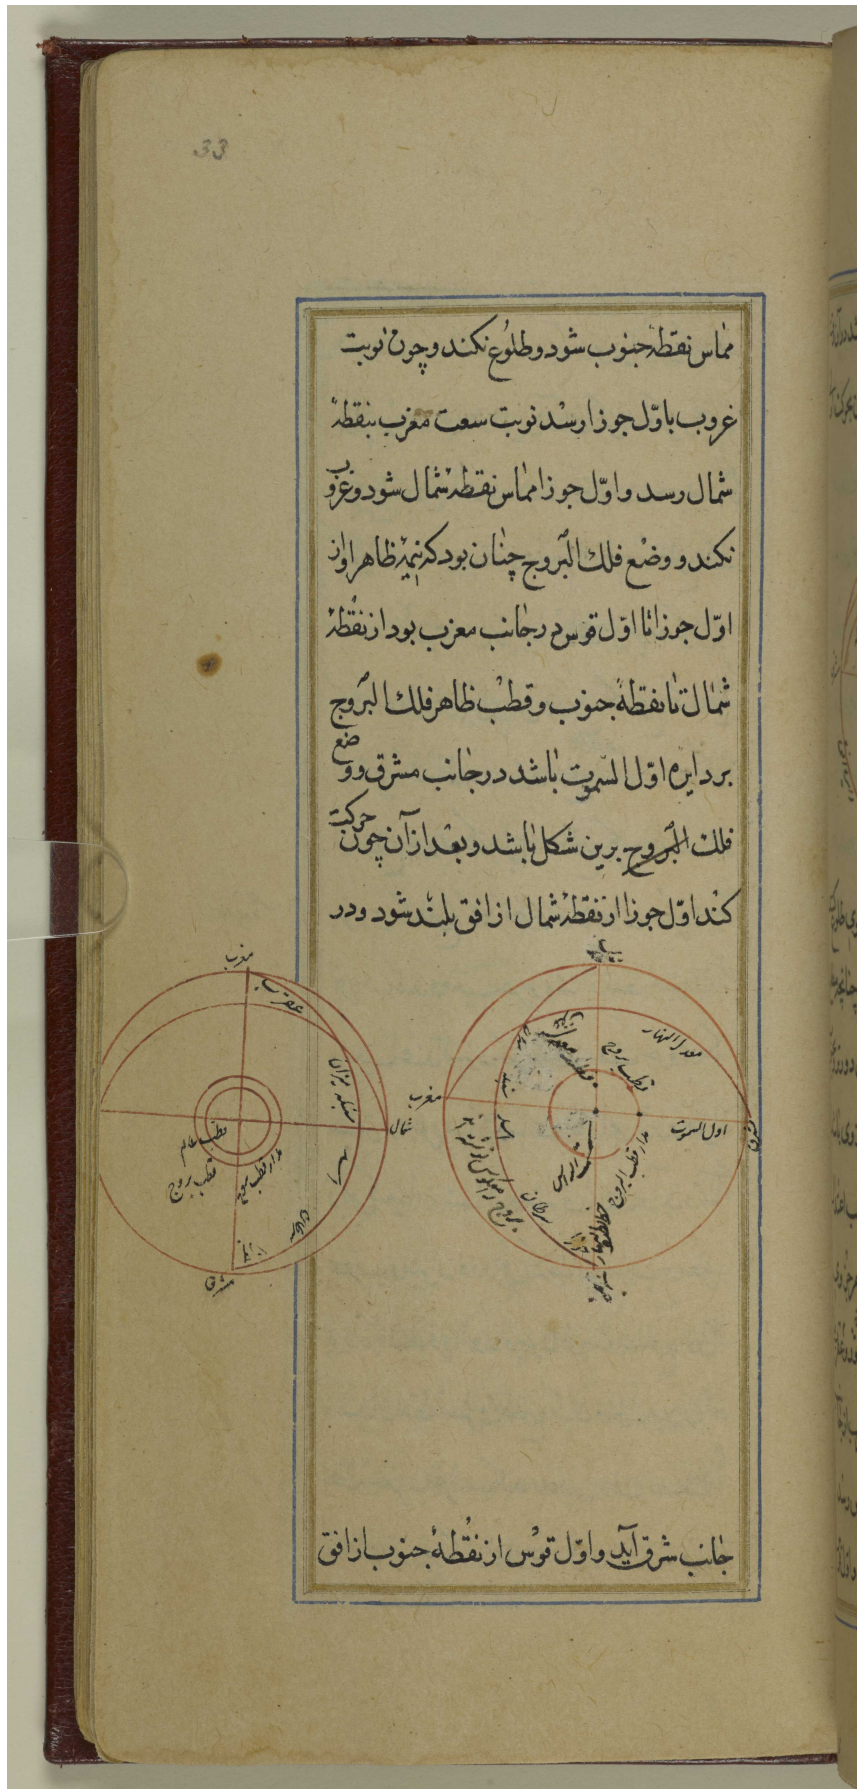 33
مماس نقطهٔ جنوب شود و طلوع نکند و چون نوبت
غروب باوّل جوزا رسد نوبت سعت مغرب بنقطهٔ
شمال رسد و اوّل جوزا مماس نقطهٔ شمال شود و غروب
نکند و وضع فلك البروج چنان بود که نیمهٔ ظاهر او از
اوّل جوزا تا اوّل قوس در جانب مغرب بود از نقطهٔ
شمال تا نقطهٔ جنوب و قطب ظاهر فلك البروج
بر دایره اوّل السموت باشد در جانب مشرق و وضع
فلك البروج برین شکل باشد و بعد از آن چون حرکت
کند اوّل جوزا از نقطهٔ شمال از افق بلند شود و در
معدل النهار
قطب بروج
مغرب
اول السموت
مشرق
مدار قطب البروج
سمت الراس
اسد
سرطان
جنوب
مغرب
عقرب
میزان
سنبله
شمال
قطب عالم
قطب بروج
مدار قطب بروج
اسد
مشرق
جانب شرق آید و اوّل قوس از نقطهٔ جنوب از افق